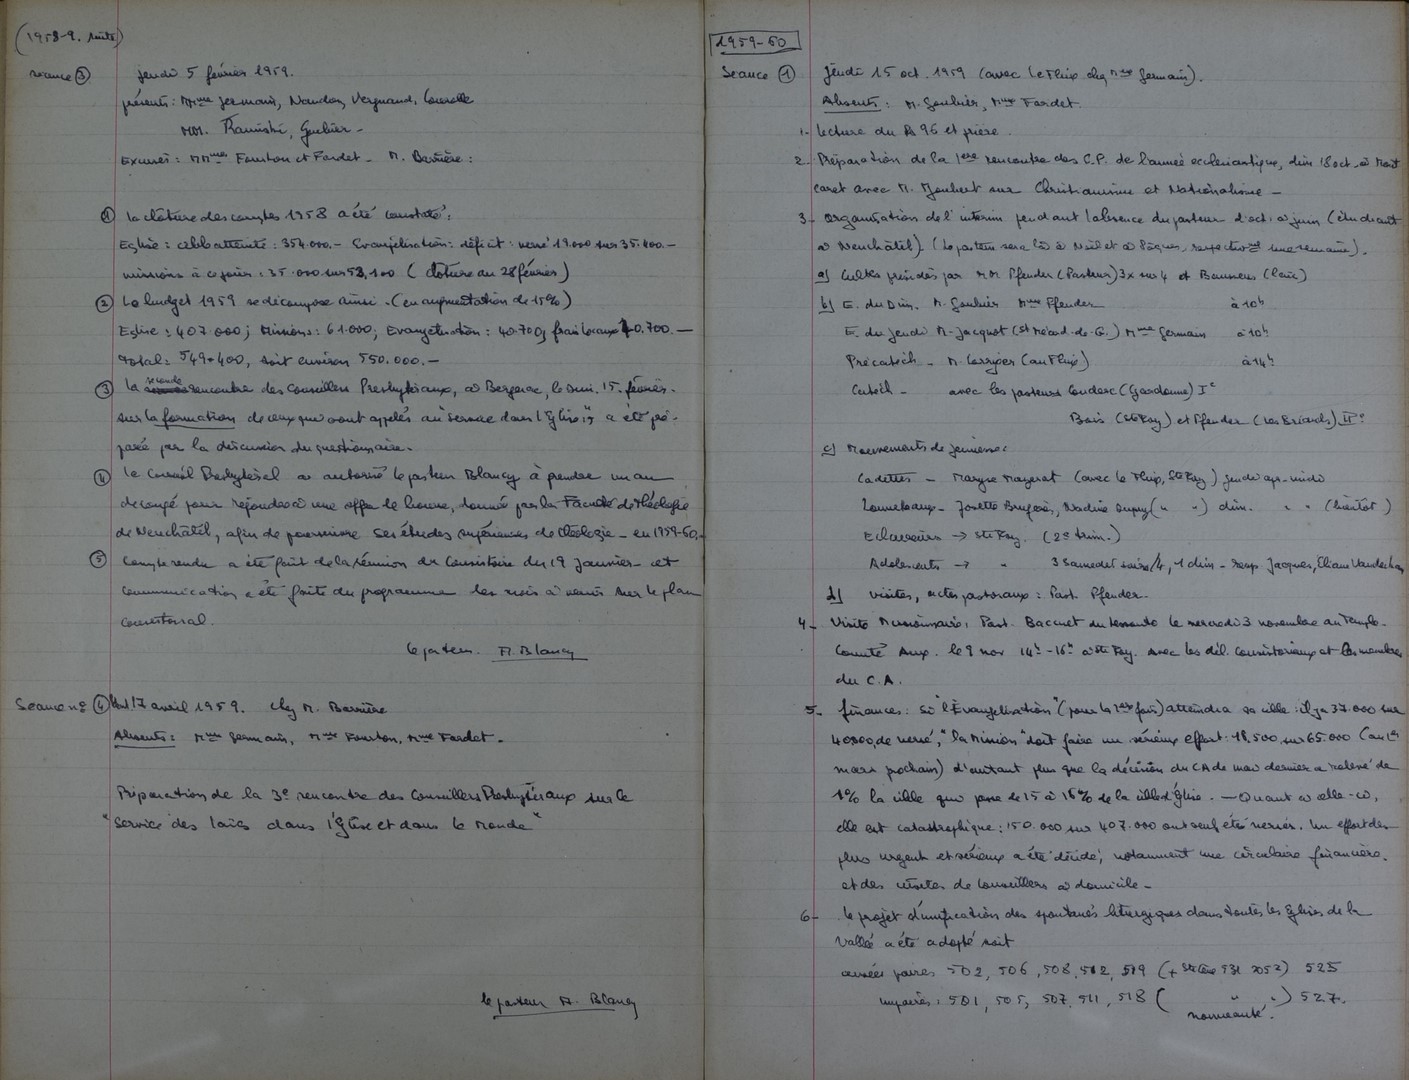 (1958-9. suite)
séance ③ jeudi 5 février 1959.
présents : MMmes Germain, Naudon, Vergnaud,
MM. Kaminski, Goubier -
Excusés : MMmes Fourton et Fardet - M. Barrière :
① La clôture des comptes 1958 a été constatée :
Eglise : cible atteinte : 354.000.- Evangélisation : déficit : versé 19.000 sur 35.400.-
missions à ce jour : 35.000 sur 53.100 (clôture au 28 février)
② Le budget 1959 se décompose ainsi - (en augmentation de 15%)
Eglise : 407.000 ; Missions : 61.000 ; Evangélisation : 40.700 ; frais locaux 40.700.-
Total : 549.400, soit environ 550.000.-
③ La seconde rencontre des Conseillers Presbytéraux, à Bergerac, le dim. 15 février -
sur la formation de ceux qui sont appelés au service dans l'Eglise", a été pré-
parée par la discussion du questionnaire.
④ Le Conseil Presbytéral a autorisé le pasteur Blancy à prendre un an
de congé pour répondre à une offre de bourse, donnée par la Faculté de théologie
de Neuchâtel, afin de poursuivre ses études supérieures de théologie - en 1959-60.
⑤ Compte rendu a été fait de la réunion du Consistoire du 19 janvier - et
communication a été faite du programme des mois à venir sur le plan
consistorial.
le pasteur. A. Blancy
Séance n° ④ 17 avril 1959. chez M. Barrière
Absents : Mme Germain, Mme Fourton, Mme Fardet -
Préparation de la 3e rencontre des Conseillers Presbytéraux sur le
"Service des laïcs dans l'Eglise et dans le Monde"
le pasteur A. Blancy
1959-60
Séance ① jeudi 15 oct. 1959 (avec Le Fleix chez Mme Germain).
Absents : M. Goubier, Mme Fardet.
1. Lecture du Ps 96 et prière.
2. Préparation de la 1ère rencontre des C.P. de l'année ecclésiastique, dim 18 oct. à Mont
caret avec M. Joubert sur Christianisme et Nationalisme -
3. Organisation de l'intérim pendant l'absence du pasteur d'oct. à juin (étudiant
à Neuchâtel). (Le pasteur sera là à Noël et à Pâques, respectivmt une semaine).
a) Cultes présidés par MM. Pfender (Pasteur) 3x sur 4 et (laïc)
b) E. du Dim. M. Goubier Mme Pfender à 10h
E. du jeudi M. Jacquot (St Méard-de-G.) Mme Germain à 10h
Précatéch - M. (au Fleix) à 14h
Catéch - avec les pasteurs Couderc (Gardonne) I°
Bois (Ste Foy) et Pfender (Les Briands) II°
c) Mouvements de jeunesse :
Cadettes - Maryse Mayerat (avec le Fleix, Ste Foy) jeudi apr-midi
Louveteaux - Josette, Nadine Dupuy (" ") dim. " " (bientôt)
Eclaireurs → Ste Foy. (2e trim.)
Adolescents → " 3 samedis soirs/4, 1 dim - resp. Jacques, Eliane
d) visites, actes pastoraux : Past. Pfender.
4. Visite Missionnaire, Past. du Lessouto le mercredi 3 novembre au Temple -
Comité Aux. le 9 nov 14h-16h à Ste Foy. avec les dél. consistoriaux et les membres
du C.A.
5. finances : Si "l'Evangélisation" (pour la 1ère fois) atteindra sa cible : il y a 37.000 sur
40.800 de versé, "la Mission" doit faire un sérieux effort : 18.500 sur 65.000 (au 1er
mars prochain) d'autant plus que la décision du CA de mai dernier a relevé de
1% la cible qui passe de 15 à 16% de la cible d'Eglise. — Quant à celle-ci,
elle est catastrophique : 150.000 sur 407.000 ont seul été versés. Un effort des
plus urgent et sérieux a été décidé, notamment une circulaire financière
et des visites de Conseillers à domicile -
6- Le projet d'unification des spontanés liturgiques dans toutes les Eglises de la
Vallée a été adopté soit
années paires 502, 506, 508, 512, 519 (+ Ste Cène 531 ) 525
impaires : 501, 505, 507, 511, 518 ( " " ) 527.
nouveauté.